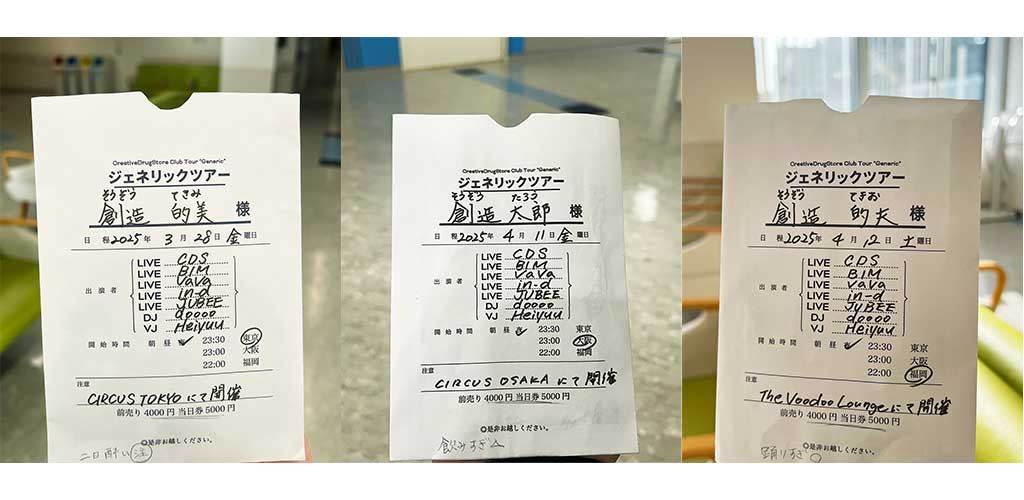 CreativeDrugStore Club Tour "Generic"
ジェネリックツアー
そうぞう てきみ
創造 的美 様
日程 2025年 3月 28日 金曜日
出演者
LIVE CDS
LIVE BIM
LIVE VaVa
LIVE in-d
LIVE JUBEE
DJ doooo
VJ Heiyuu
開始時間 朝 昼 夜 23:30 東京
23:00 大阪
22:00 福岡
注意
CIRCUS TOKYOにて開催
前売り 4000円 当日券 5000円
◎是非お越しください。
二日酔い注
CreativeDrugStore Club Tour "Generic"
ジェネリックツアー
そうぞう たろう
創造 太郎 様
日程 2025年 4月 11日 金曜日
出演者
LIVE CDS
LIVE BIM
LIVE VaVa
LIVE in-d
LIVE JUBEE
DJ doooo
VJ Heiyuu
開始時間 朝 昼 夜 23:30 東京
23:00 大阪
22:00 福岡
注意
CIRCUS OSAKAにて開催
前売り 4000円 当日券 5000円
◎是非お越しください。
飲みすぎ△
CreativeDrugStore Club Tour "Generic"
ジェネリックツアー
そうぞう てきお
創造 的夫 様
日程 2025年 4月 12日 土曜日
出演者
LIVE CDS
LIVE BIM
LIVE VaVa
LIVE in-d
LIVE JUBEE
DJ doooo
VJ Heiyuu
開始時間 朝 昼 夜 23:30 東京
23:00 大阪
22:00 福岡
注意
The Voodoo Loungeにて開催
前売り 4000円 当日券 5000円
◎是非お越しください。
踊りすぎ○